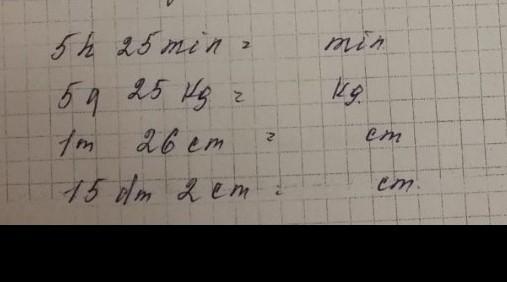 5h 25min = min
5q 25 Kg = kg.
1m 26 cm = cm
15 dm 2 cm = cm.